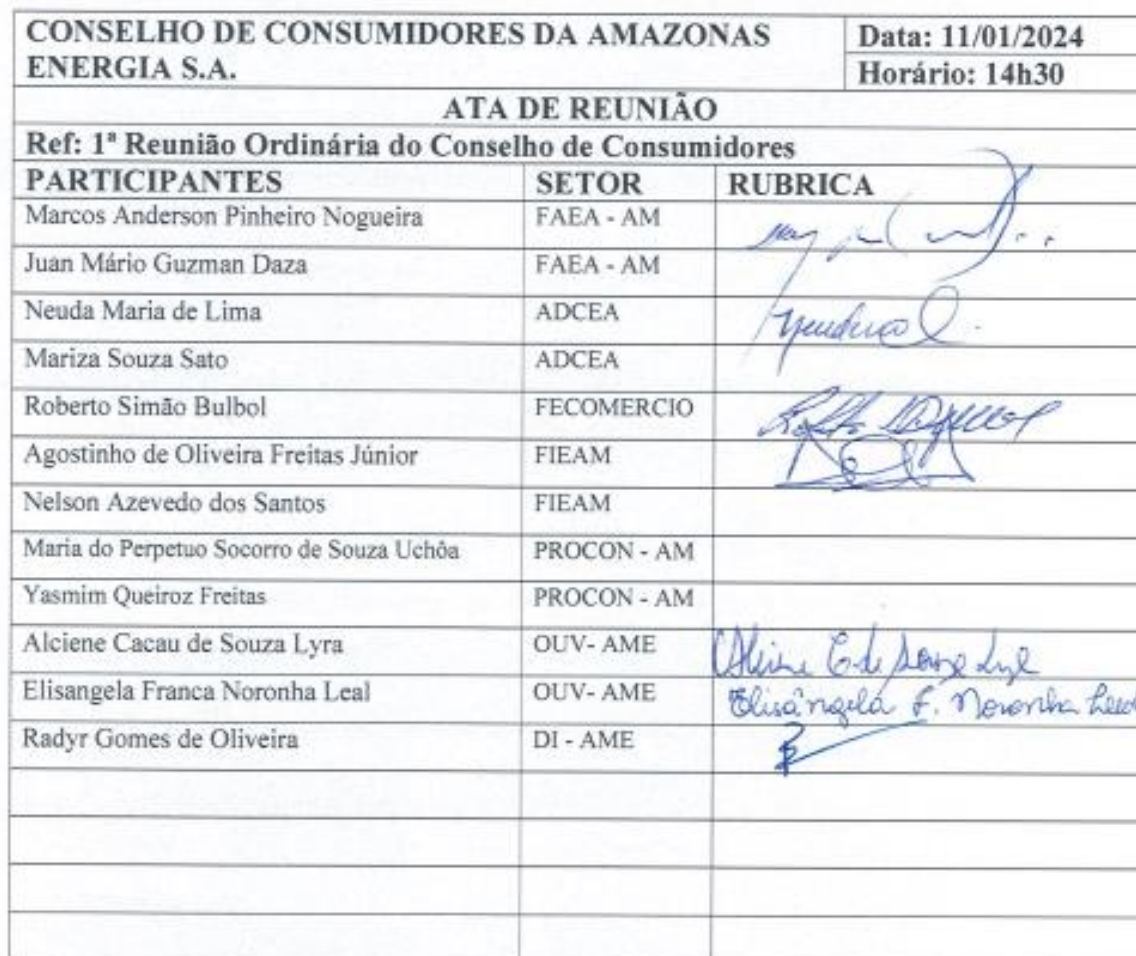 CONSELHO DE CONSUMIDORES DA AMAZONAS
ENERGIA S.A.
Data: 11/01/2024
Horário: 14h30
ATA DE REUNIÃO
Ref: 1ª Reunião Ordinária do Conselho de Consumidores
PARTICIPANTES SETOR RUBRICA
Marcos Anderson Pinheiro Nogueira FAEA - AM
Juan Mário Guzman Daza FAEA - AM
Neuda Maria de Lima ADCEA
Mariza Souza Sato ADCEA
Roberto Simão Bulbol FECOMERCIO
Agostinho de Oliveira Freitas Júnior FIEAM
Nelson Azevedo dos Santos FIEAM
Maria do Perpetuo Socorro de Souza Uchôa PROCON - AM
Yasmim Queiroz Freitas PROCON - AM
Alciene Cacau de Souza Lyra OUV- AME
Elisangela Franca Noronha Leal OUV- AME Elisângela F. Noronha Leal
Radyr Gomes de Oliveira DI - AME